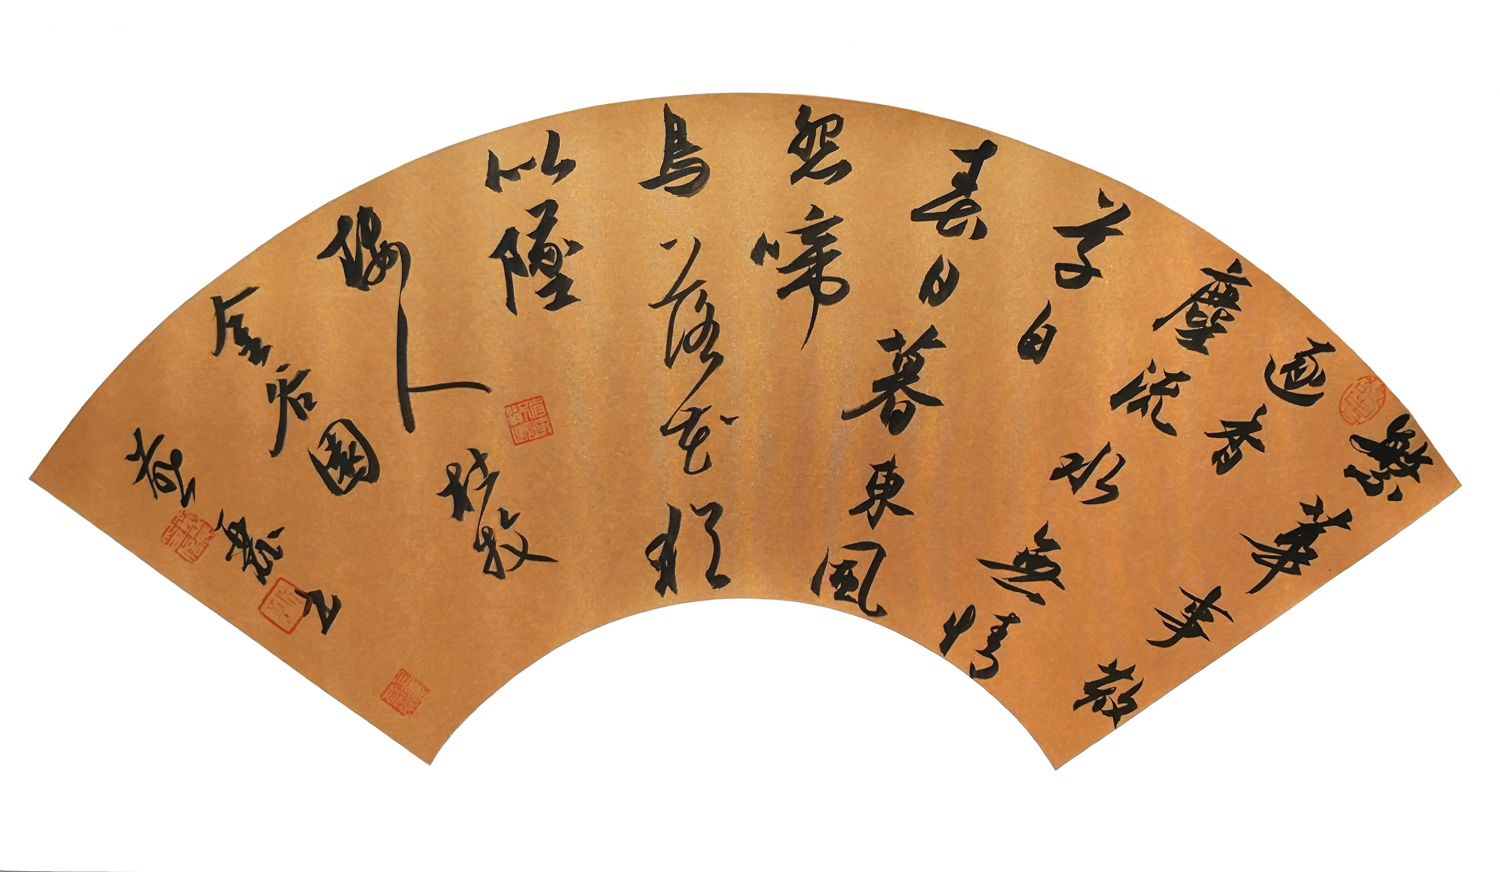 繁華事散
逐香
塵流水無情
草自
春日暮東風
怨啼
鳥落花猶
以墜
樓人 杜牧
金谷園